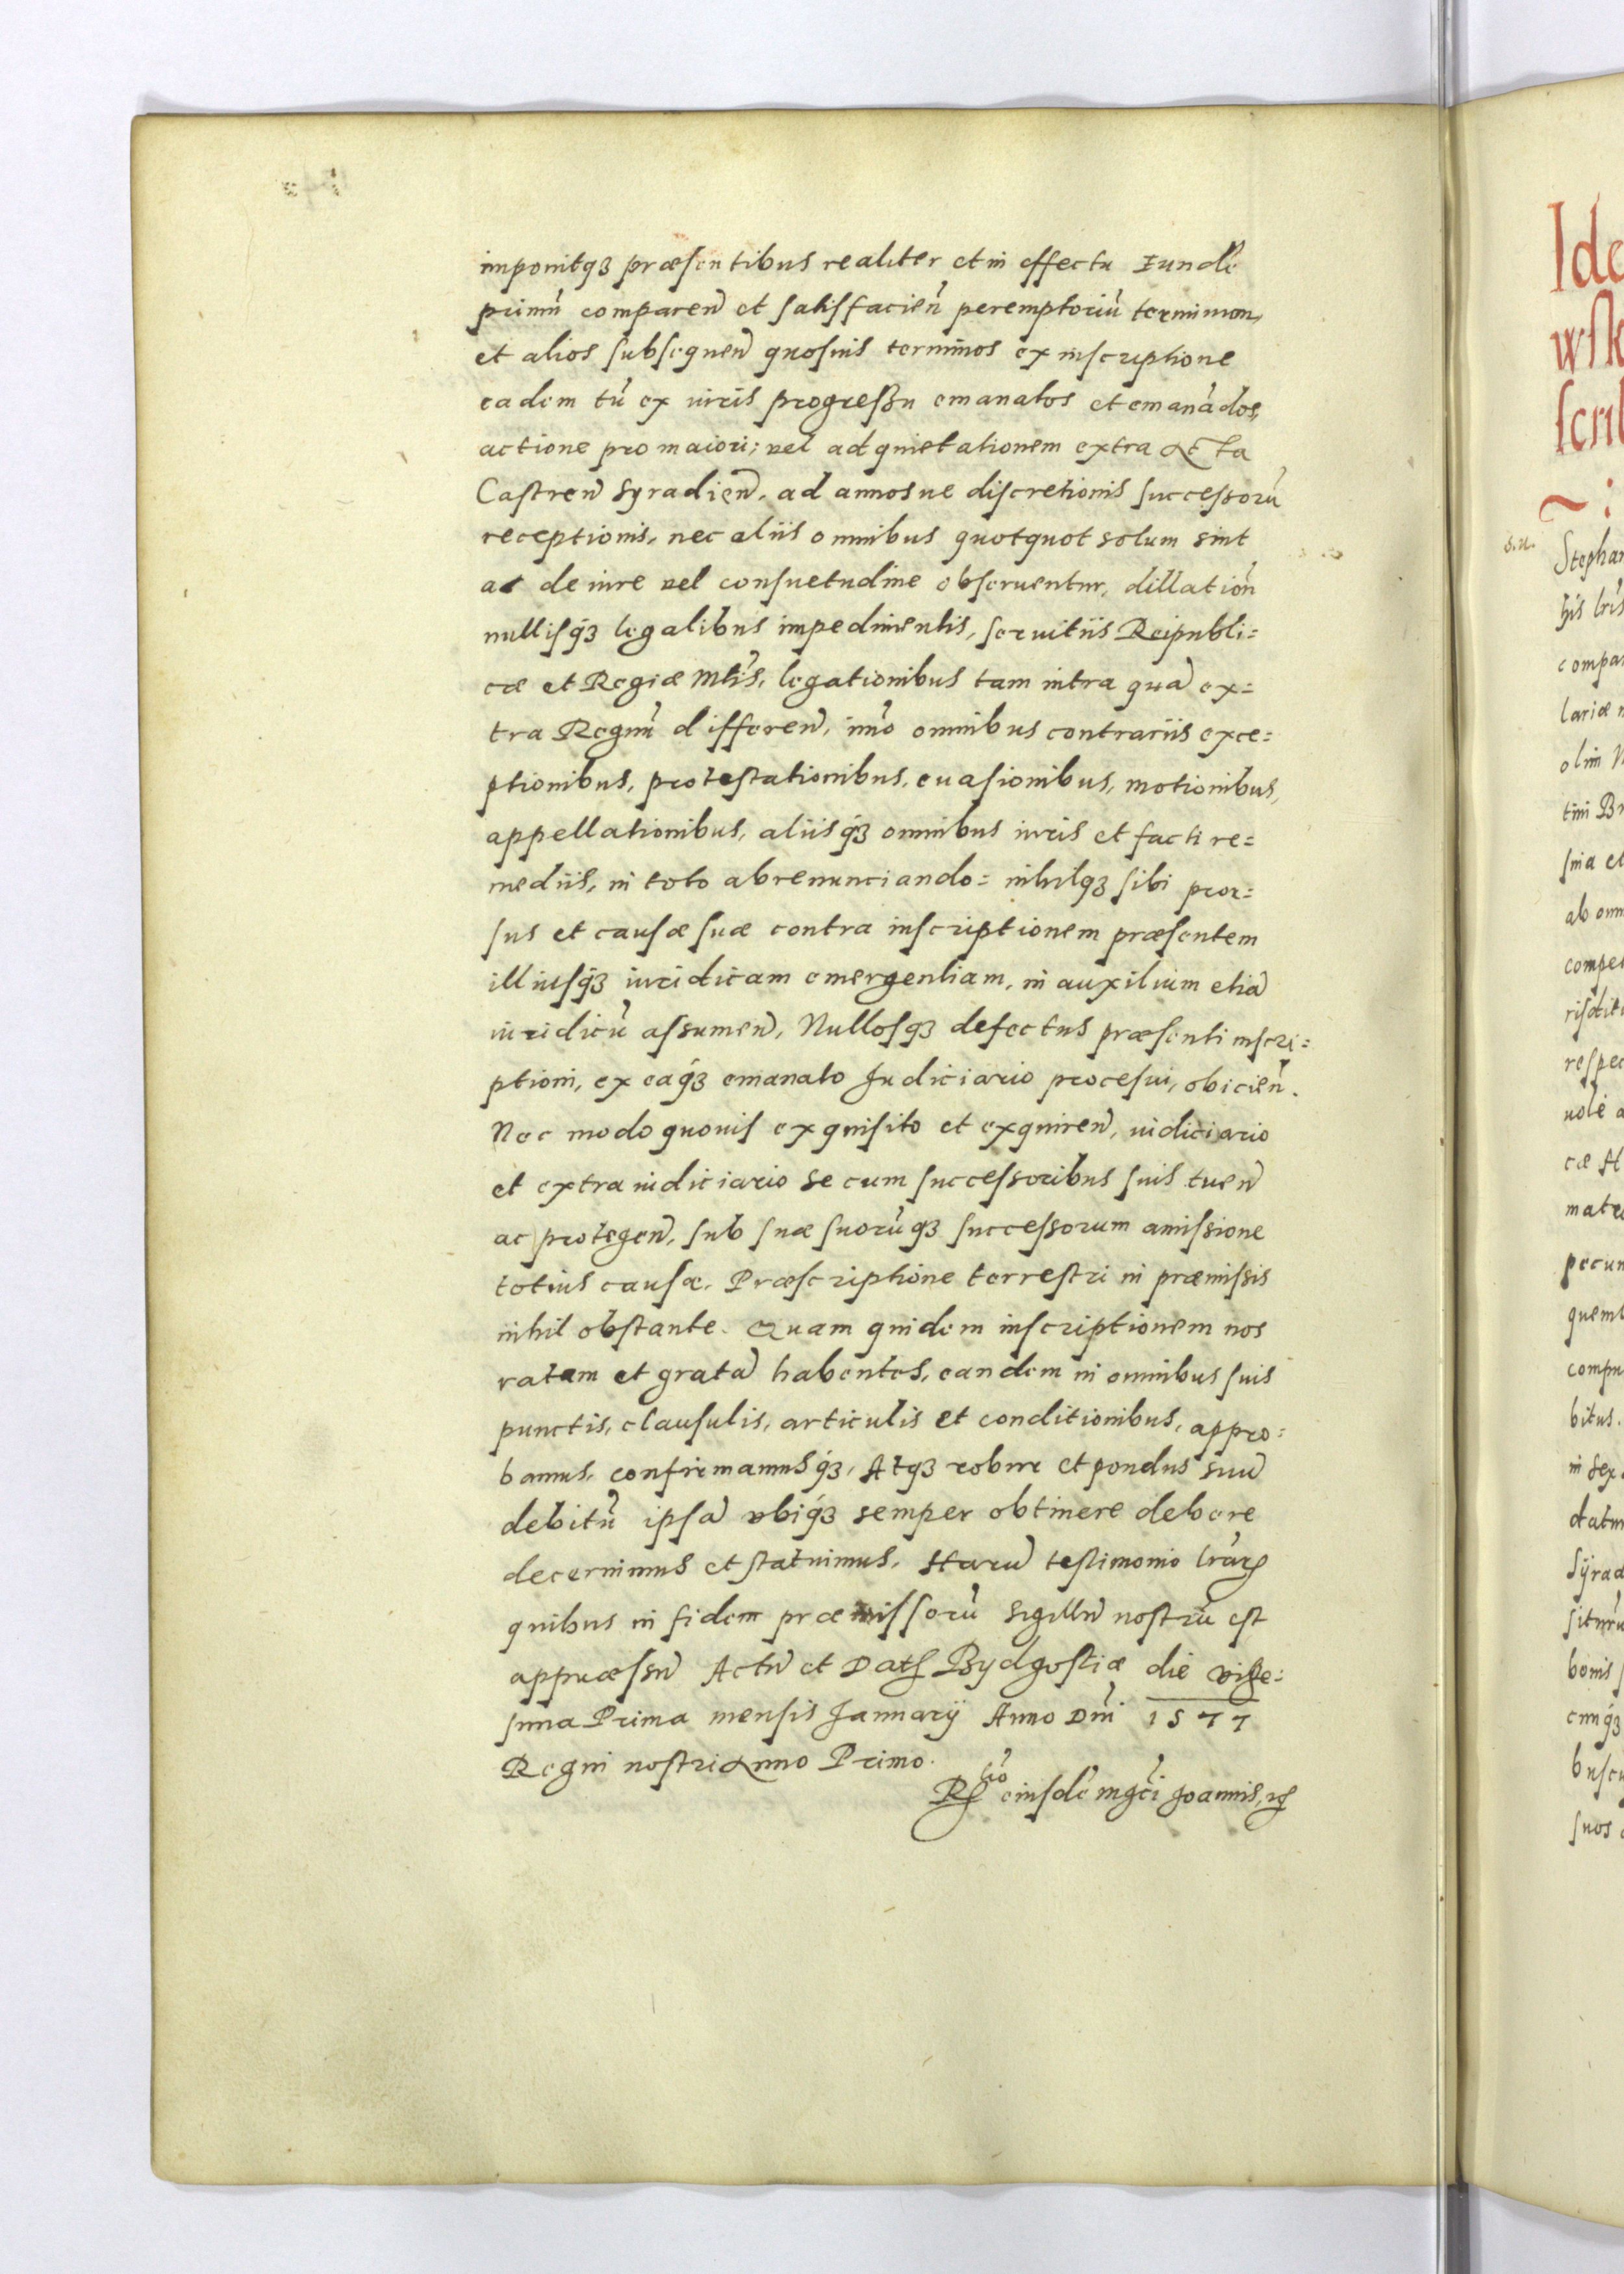 imponitqꝫ præsentibus realiter et in effectu Eundē
primū comparen̄ et satisfacien̄ peremptoriū terminum,
et alios subsequen̄ quosuis terminos ex inscriptione
eadem tū ex iuris progressu emanatos et emanādos,
actione pro maiori; vel ad quietationem extra Acta
Castren̄ Syradien̄. ad annosue discretionis successorū
receptionis, nec aliis omnibus quotquot solum sint
ac de iure vel consuetudine obseruentur, dillation̄
nullisqꝫ legalibus impedimentis, seruitiis Reipubli=
cæ et Regiæ Mt̄is, legationibus tam intra quā ex=
tra Regnū differen̄, im̄o omnibus contrariis exce=
ptionibus, protestationibus, euasionibus, motionibus,
appellationibus, aliisqꝫ omnibus iuris et facti re=
mediis, in toto abrenunciando= nihilqꝫ sibi pror=
sus et causæ suæ contra inscriptionem præsentem
illiusqꝫ iuridicam emergentiam, in auxilium etiā
iuridicū assumen̄, Nullosqꝫ defectus præsenti inscri=
ptioni, ex eaqꝫ emanato Judiciario procesui, obicien̄.
Nec modo quouis exquisito et exquiren̄, iudiciario
et extraiudiciario se cum successoribus suis tuen̄
ac protegen̄, sub suæ suorūqꝫ successorum amissione
totius causæ. Præscriptione terrestri in præmissis
nihil obstante. Quam quidem inscriptionem nos
ratam et gratā habentes, eandem in omnibus suis
punctis, clausulis, articulis et conditionibus, appro=
bamus, confirmamusqꝫ, Atqꝫ robur et pondus suū
debitū ipsā vbiqꝫ semper obtinere debere
decernimus et statuimus. Harū testimonio lr̄arꝭ
quibus in fidem præmissorū Sigillū nostrū est
appræssū Actū et Datꝭ Bydgostiæ die vige=
sima Prima mensis Januarij Anno Dn̄i 1577
Regni nostri Anno Primo.
Rꝭcio eiusdē mgc̄i Joannis, rꝭ
Ide
wsk
scrib
s.n.
Stephan
his lr̄is
compar
lariæ
olim
tini Br
sua et
ab omn
compe
risditi
respec
uolē
cæ H
mate
pecun
quemb
compu
bitus.
in sex
datur
Syrad
siturū
bonis
cunqꝫ
buscu
suos